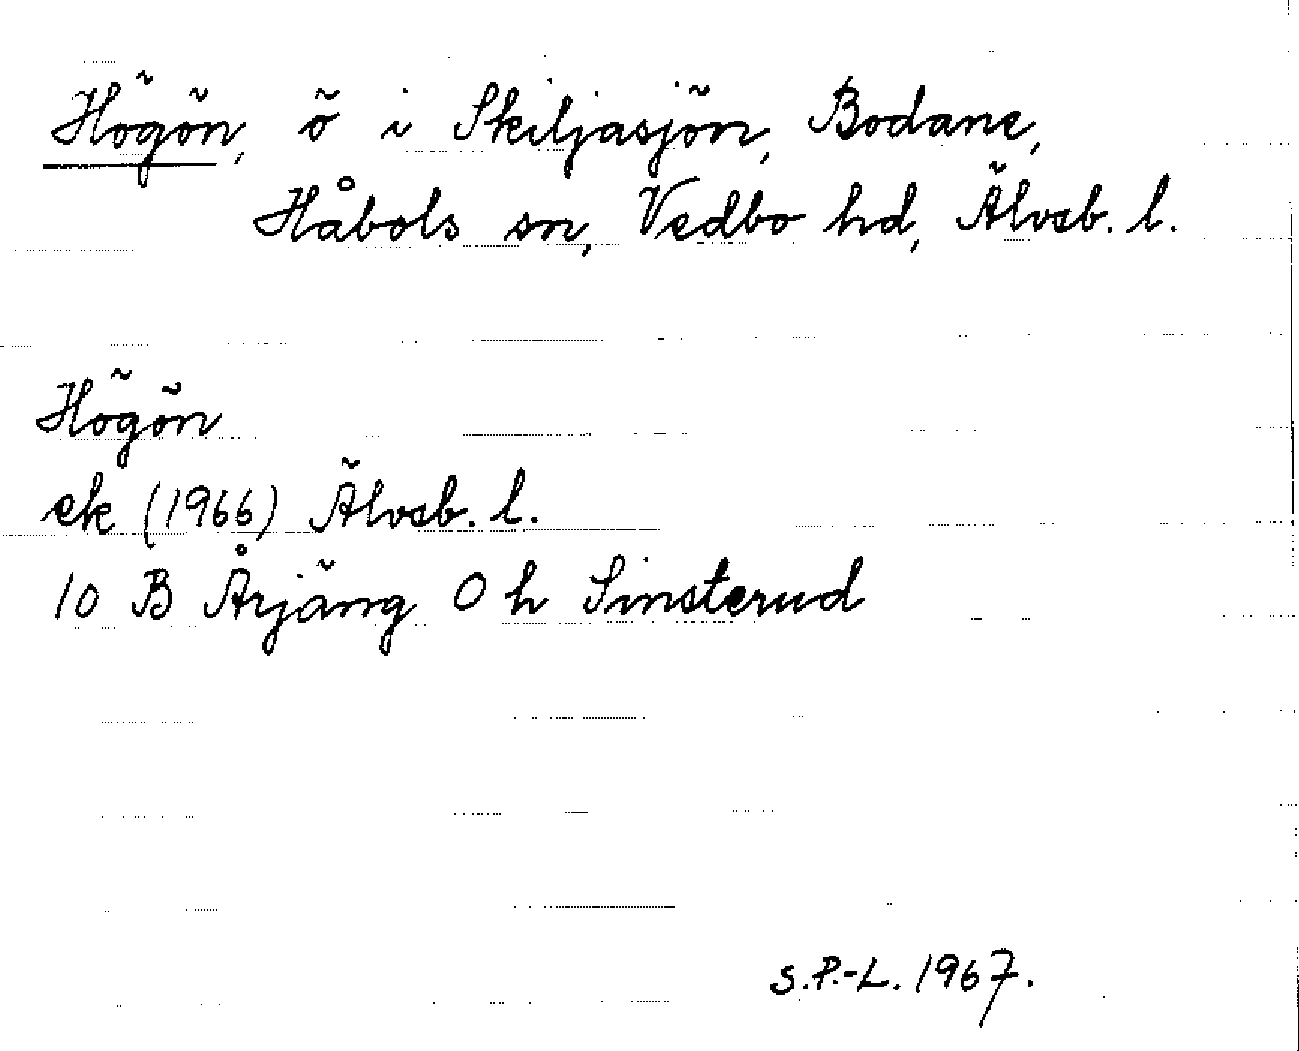 Högön, ö i Skiljasjön, Bodane,
Håbols sn, Vedbo hd, Älvsb. l.
Högön
ek (1966) Älvsb. l.
10 B Årjäng 0 h Sinsterud
S.P.-L. 1967.